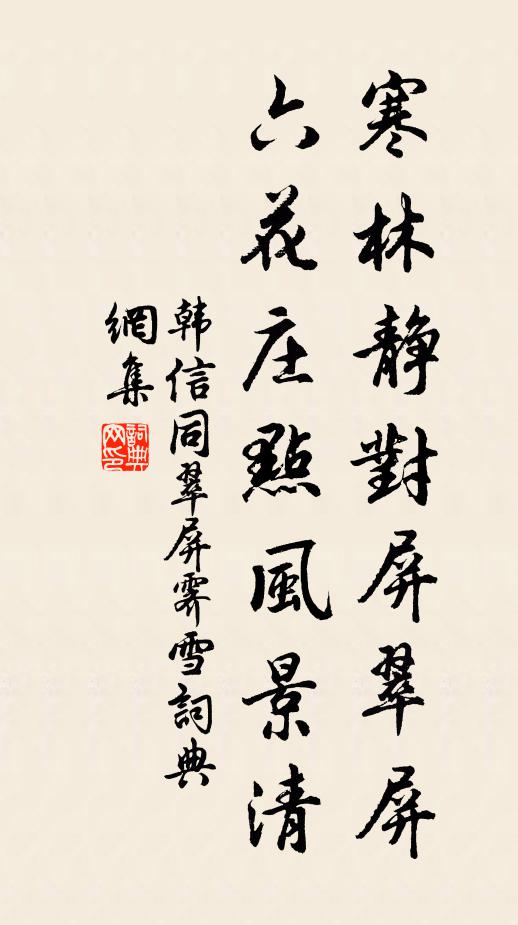 寒林静對屏翠屏
六花庄點風景清
韩信同翠屏霁雪詞典
網集
詞典
网印